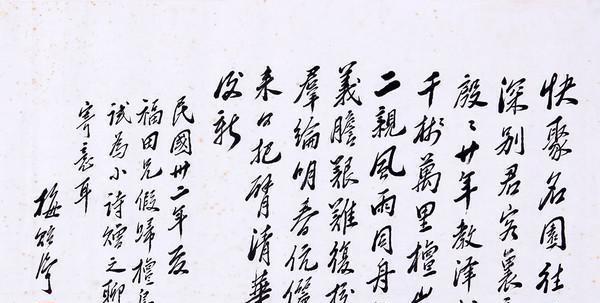 快聚名園往
深别君容
殷〻廿年教澤
千彬萬里檀山
二親風雨同舟
義膽艱難復
羣綸明春伉儷
来日把臂清華
民國卅二年夏
福田兄假歸檀島
试為小詩贈之聊
寄意耳
梅貽琦